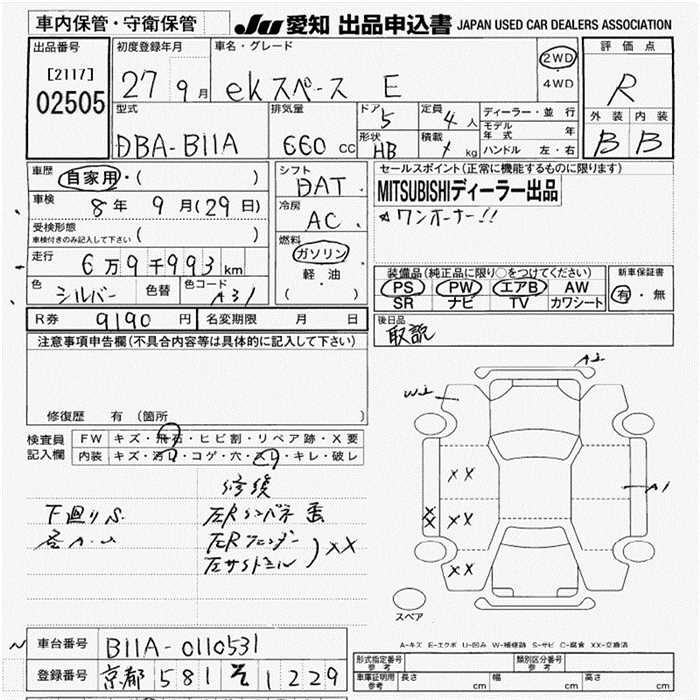 車内保管・守衛保管
JU 愛知 出品申込書 JAPAN USED CAR DEALERS ASSOCIATION
出品番号 初度登録年月 車名・グレード 評価点
[2117] 27 9月 ekスペース E 2WD・4WD R
02505
型式 排気量 ドア 5 定員 4人 ディーラー・並行 外装 内装
DBA-B11A 660cc 形状 HB 積載 kg モデル年式 年 B B
ハンドル 左・右
車歴 自家用・( ) シフト セールスポイント(正常に機能するものに限ります)
DAT MITSUBISHIディーラー出品
車検 8年 9月(29日) 冷房 ☆ワンオーナー!!
受検形態 AC
車検付きのみ記入して下さい ( )
走行 6万9千993km 燃料 ガソリン・軽・油 ( )
装備品(純正品に限り○をつけてください) 新車保証書
PS PW エアB AW 有・無
SR ナビ TV カワシート
色 シルバー 色替 色コード A31
R券 9190円 名変期限 月 日 後日品
注意事項申告欄(不具合内容等は具体的に記入して下さい) 取説
修復歴 有 (箇所 )
A2
W2
検査員 FW キズ・飛石・ヒビ割・リペア跡・X要
記入欄 内装 キズ・汚れ・コゲ・穴・スレ・キレ・破レ
XX
A1
修後
下廻りS 左Rインパネ
XX XX
左Rフェンダー
左サイドシル ) XX
XX
スペア
A-キズ E-エクボ U-凹み W-補修跡 S-サビ C-腐食 XX-交換済
車台番号 B11A-0110531
登録番号 京都 581 そ 1229
形式指定番号 参考 類別区分番号 参考
車庫証明用 参考 長さ cm 幅 cm 高さ cm